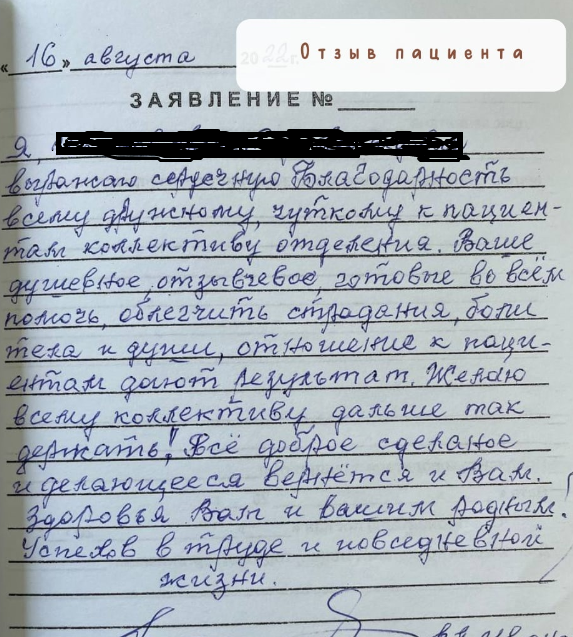 Отзыв пациента
«16» августа 2022 г.
ЗАЯВЛЕНИЕ №
Я,
выражаю сердечную Благодарность
всему дружному, чуткому к пациен-
там коллективу отделения. Ваше
душевное, отзывчевое, готовые во всём
помочь, облегчить страдания, боли
тела и души, отношение к паци-
ентам дают результат. Желаю
всему коллективу дальше так
держать! Всё доброе сделаное
и делающееся вернётся и Вам.
Здоровья Вам и вашим родным!
Успехов в труде и повседневной
жизни.